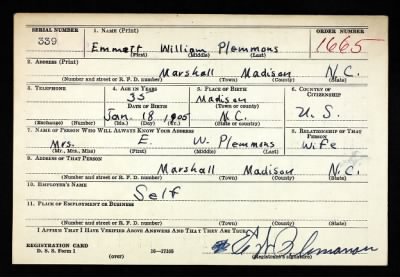 SERIAL NUMBER 1. NAME (Print) ORDER NUMBER
339 Emmett William Plemmons 1665
(First) (Middle) (Last)
2. ADDRESS (Print)
Marshall Madison N.C.
(Number and street or R. F. D. number) (Town) (County) (State)
3. TELEPHONE 4. AGE IN YEARS 5. PLACE OF BIRTH 6. COUNTRY OF CITIZENSHIP
35 Madison
DATE OF BIRTH (Town or county)
Jan. 18 1905 N.C. U.S.
(Exchange) (Number) (Mo.) (Day) (Yr.) (State or country)
7. NAME OF PERSON WHO WILL ALWAYS KNOW YOUR ADDRESS 8. RELATIONSHIP OF THAT PERSON
Mrs. E. W. Plemmons Wife
(Mr., Mrs., Miss) (First) (Middle) (Last)
9. ADDRESS OF THAT PERSON
Marshall Madison N.C.
(Number and street or R. F. D. number) (Town) (County) (State)
10. EMPLOYER'S NAME
Self
11. PLACE OF EMPLOYMENT OR BUSINESS
(Number and street or R. F. D. number) (Town) (County) (State)
I AFFIRM THAT I HAVE VERIFIED ABOVE ANSWERS AND THAT THEY ARE TRUE.
REGISTRATION CARD
D. S. S. Form 1 16-17105
(over) (Registrant's signature)